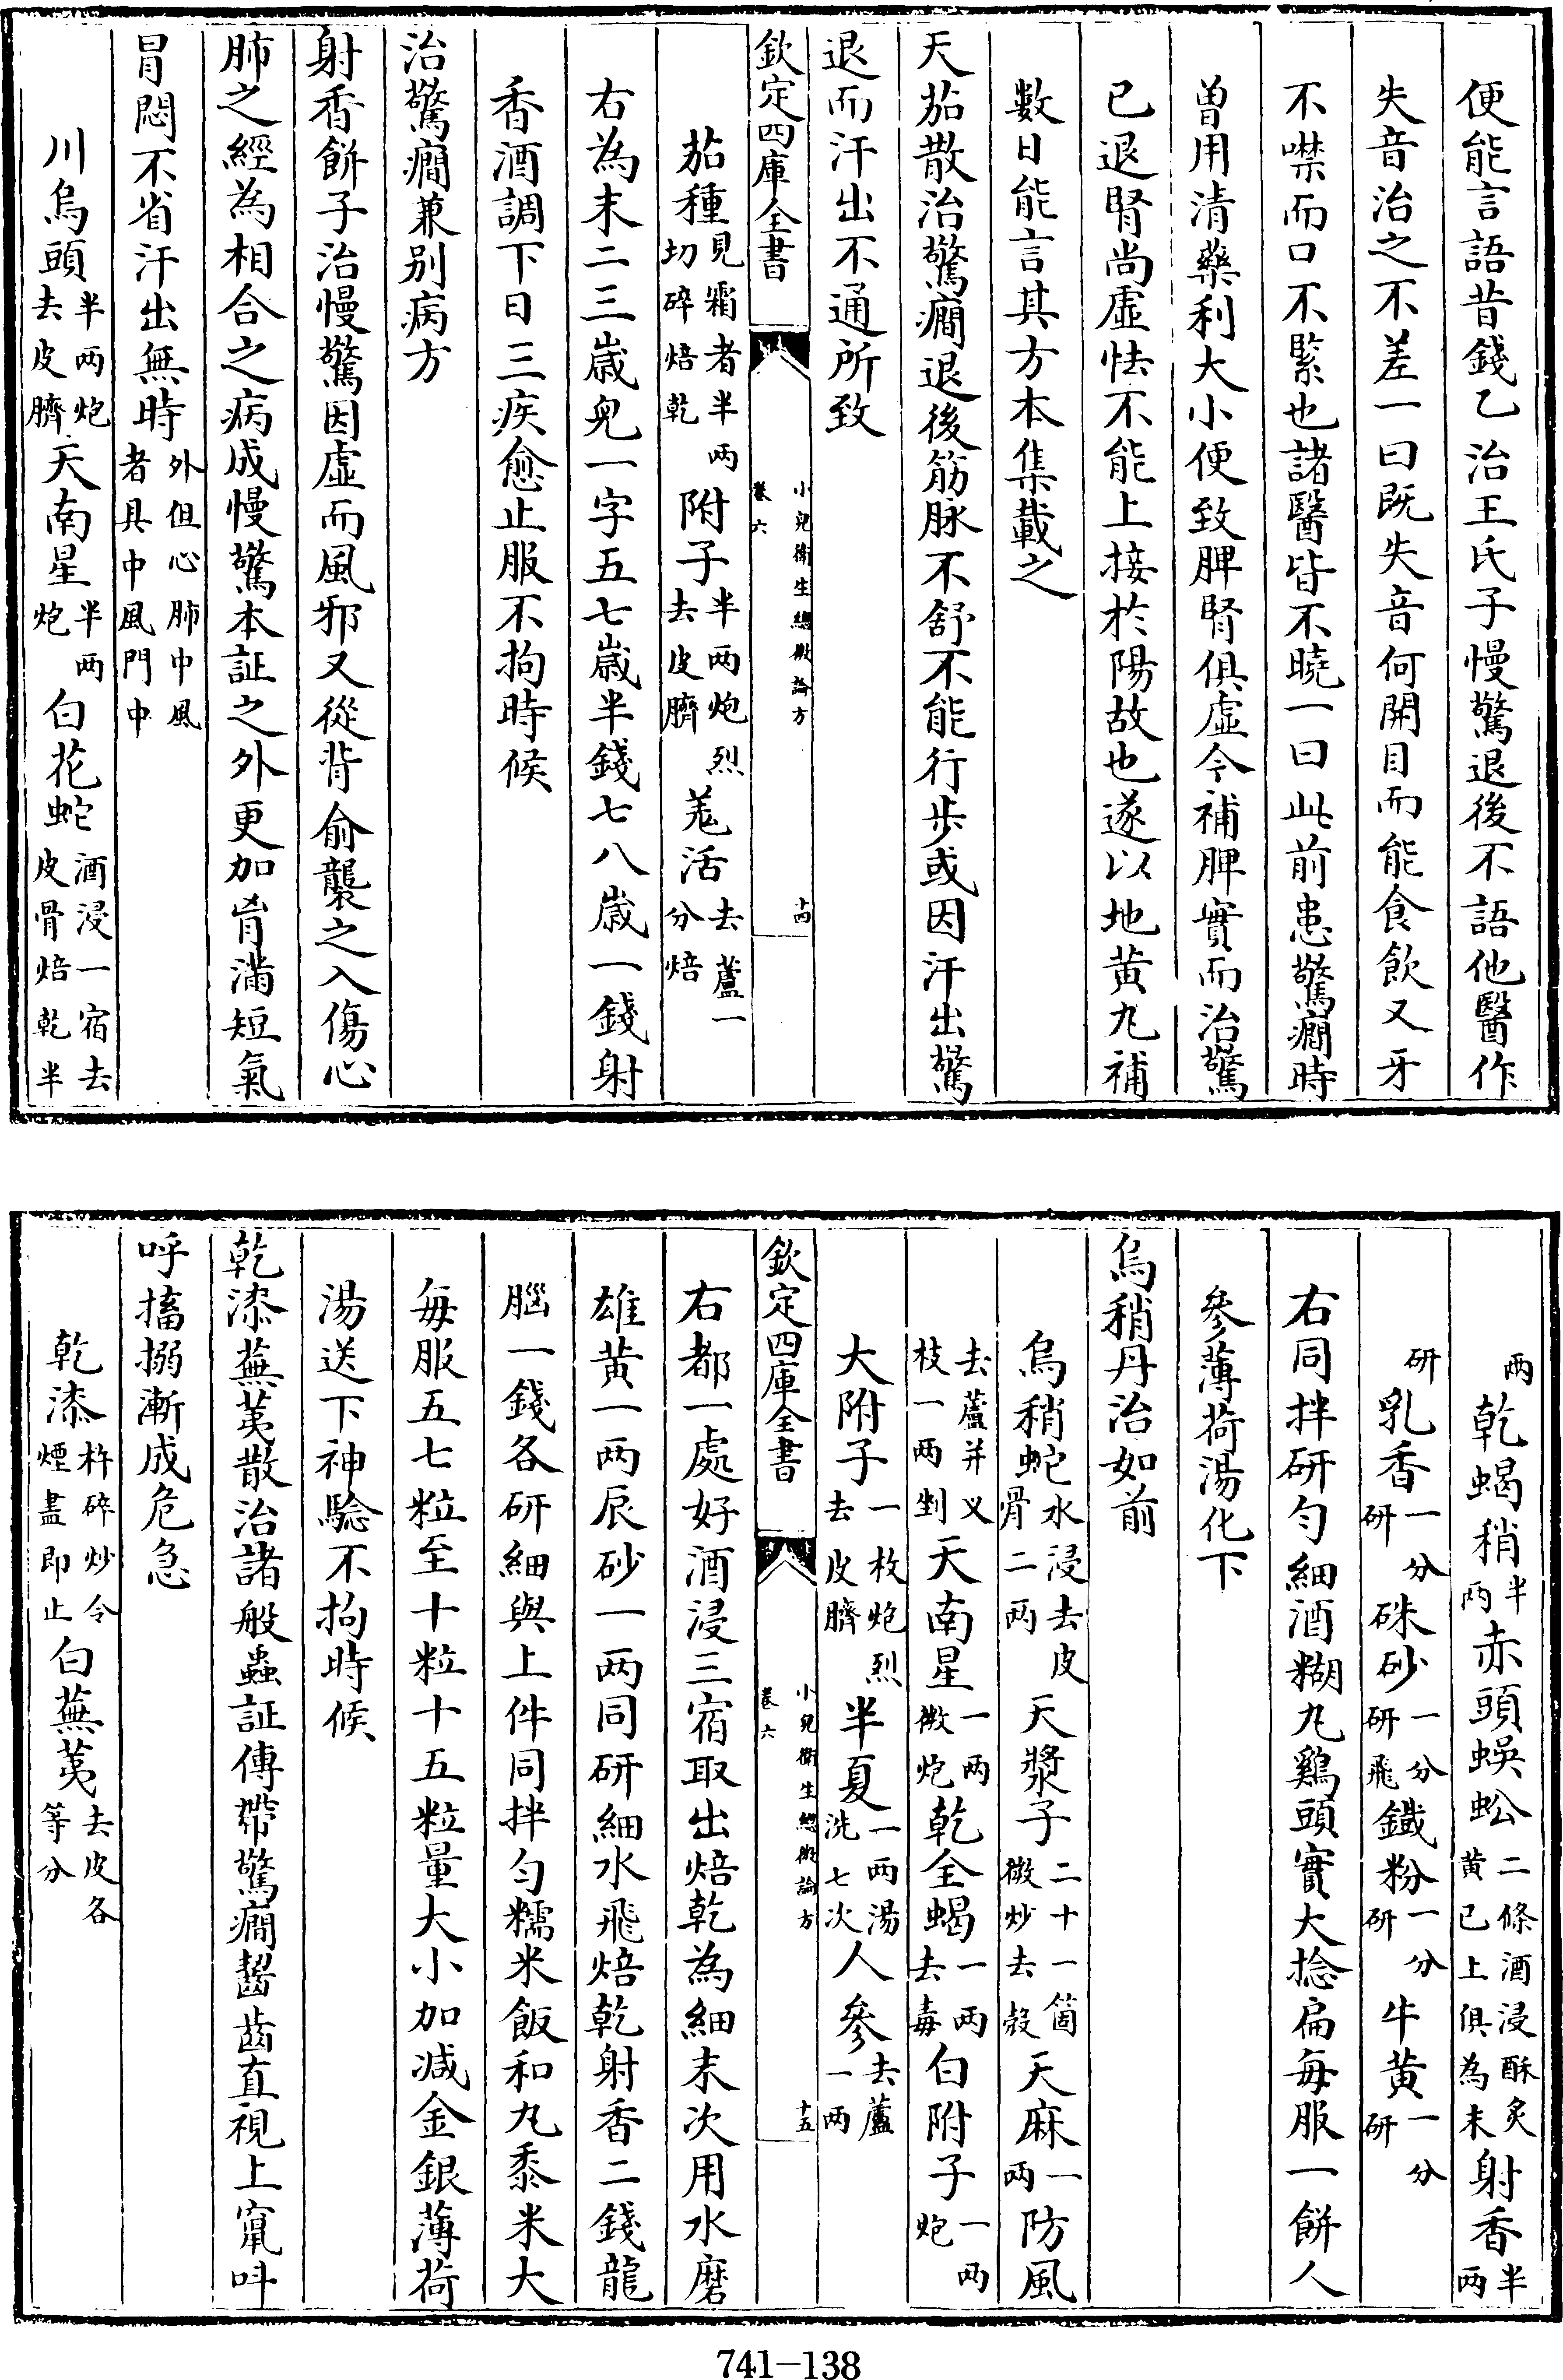 便能言語昔錢乙治王氏子慢驚退後不語他醫作
失音治之不差一曰既失音何開目而能食飲又牙
不噤而口不緊也諸醫皆不曉一曰此前患驚癇時
曽用清藥利大小便致脾腎俱虛今補脾實而治驚
已退腎尚虛怯不能上接於陽故也遂以地黄丸補
數日能言其方本集載之
天茄散治驚癇退後筋脉不舒不能行步或因汗出驚
退而汗出不通所致
欽定四庫全書
小兒衛生總微論方
卷六
十四
茄種見霜者半两切碎焙乾附子半两炮烈去皮臍羗活去蘆一分焙
右為末二三嵗兒一字五七嵗半錢七八嵗一錢射
香酒調下日三疾愈止服不拘時候
治驚癇兼别病方
射香餅子治慢驚因虛而風邪又從背俞襲之入傷心
肺之經為相合之病成慢驚本証之外更加胷滿短氣
冒悶不省汗出無時外但心肺中風者具中風門中
川烏頭半两炮去皮臍天南星半两炮白花蛇酒浸一宿去皮骨焙乾半
两乾蝎稍半两赤頭蜈蚣二條酒浸酥炙黄已上俱為末射香半两
研乳香一分研硃砂一分研飛鐡粉一分研牛黄一分研
右同拌研匀細酒糊丸鷄頭實大捻扁每服一餅人
參薄荷湯化下
烏稍丹治如前
烏稍蛇水浸去皮骨二两天漿子二十一箇微炒去殻天麻一两防風
去蘆并义枝一两剉天南星一两微炮乾全蝎一两去毒白附子一两炮
大附子一枚炮烈去皮臍半夏一两湯洗七次人參去蘆一两
欽定四庫全書
小兒衛生總微論方
卷六
十五
右都一處好酒浸三宿取出焙乾為細末次用水磨
雄黄一两辰砂一两同研細水飛焙乾射香二錢龍
腦一錢各研細與上件同拌匀糯米飯和丸黍米大
每服五七粒至十粒十五粒量大小加减金銀薄荷
湯送下神驗不拘時候
乾漆蕪荑散治諸般蟲証傳帶驚癇齧齒直視上竄呌
呼搐搦漸成危急
乾漆杵碎炒令煙盡即止白蕪荑去皮各等分
741-138